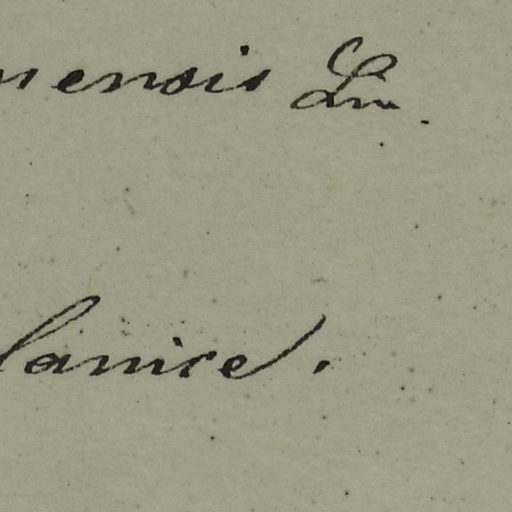 nensis Lin.
lanice.